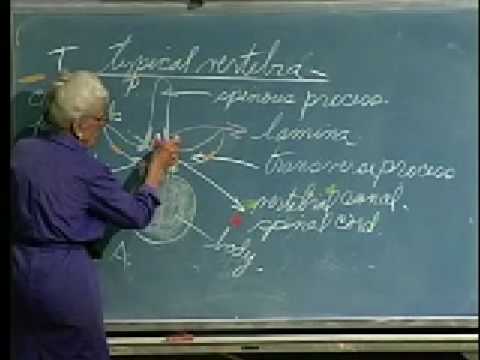 typical vertebra
spinous process.
lamina.
transverse process
vertebral canal.
spinal cord.
body.
A.